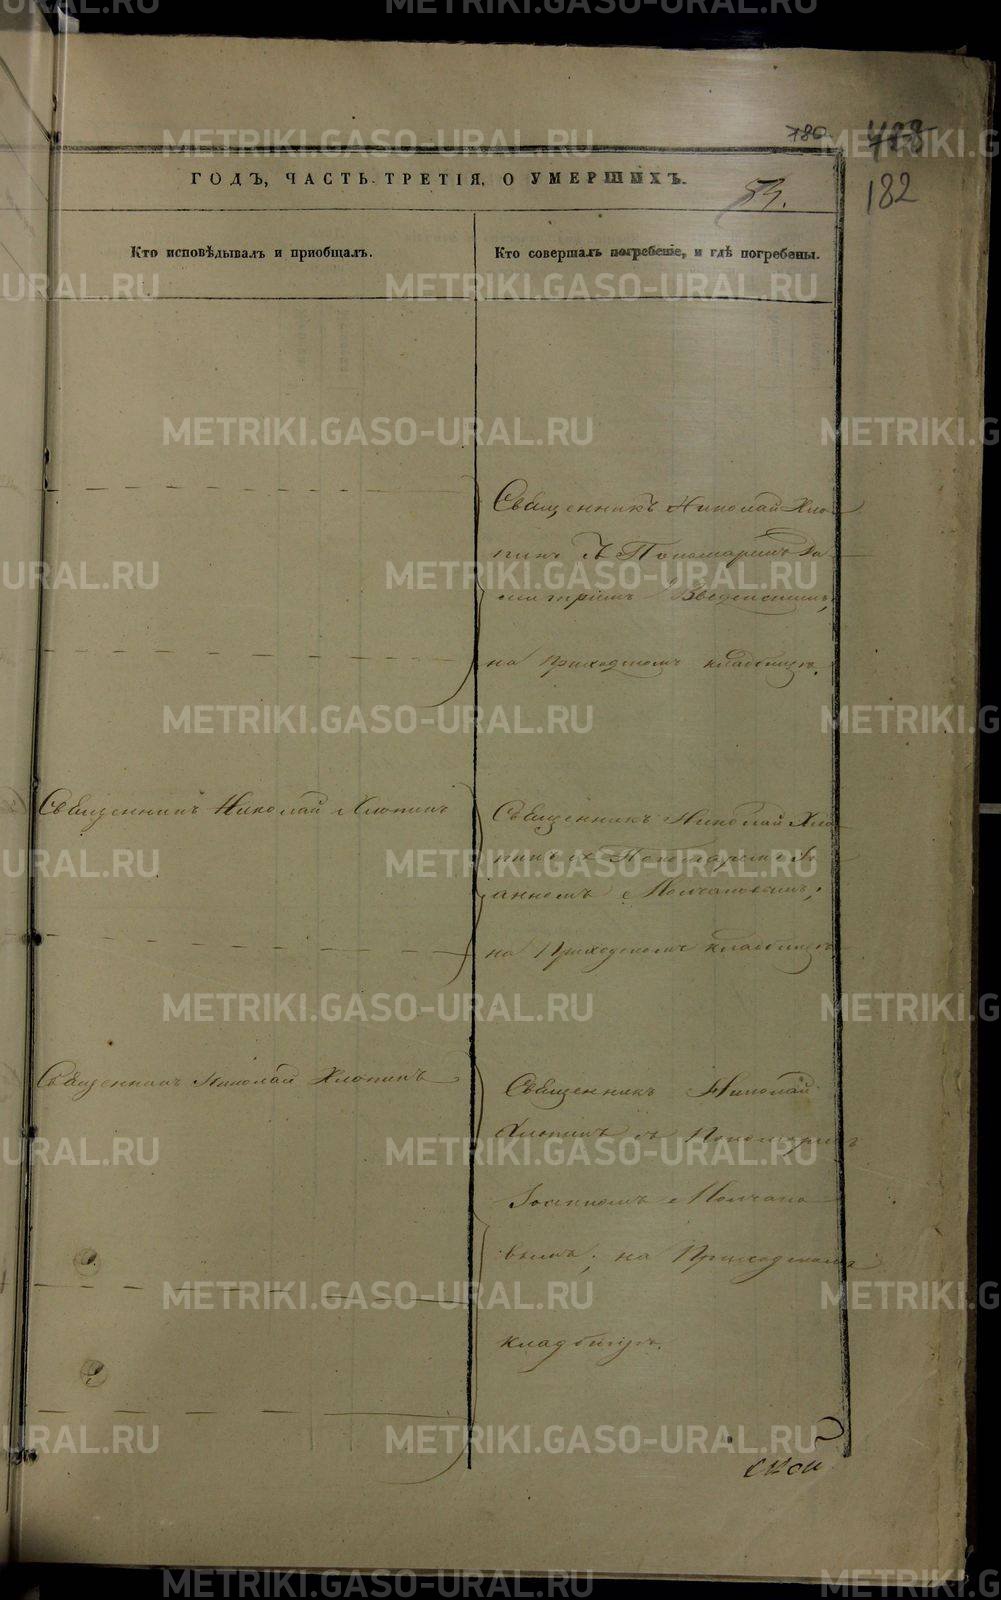 780
428
182
ГОДЪ, ЧАСТЬ ТРЕТІЯ, О УМЕРШИХЪ.
53.
Кто исповѣдывалъ и приобщалъ.
Кто совершалъ погребеніе, и гдѣ погребены.
Священникъ Николай Хло
пинъ съ Пономаремъ Ди
митріемъ Введенскимъ,
на Приходскомъ кладбищѣ.
Священникъ Николай Хлопинъ
Священникъ Николай Хло
пинъ съ Пономаремъ Іо
анномъ Молчановымъ,
на Приходскомъ кладбищѣ
Священникъ Николай Хлопинъ
Священникъ Николай
Хлопинъ съ Пономаремъ
Іоанномъ Молчано
вымъ, на Приходскомъ
кладбищѣ.
ской
METRIKI.GASO-URAL.RU